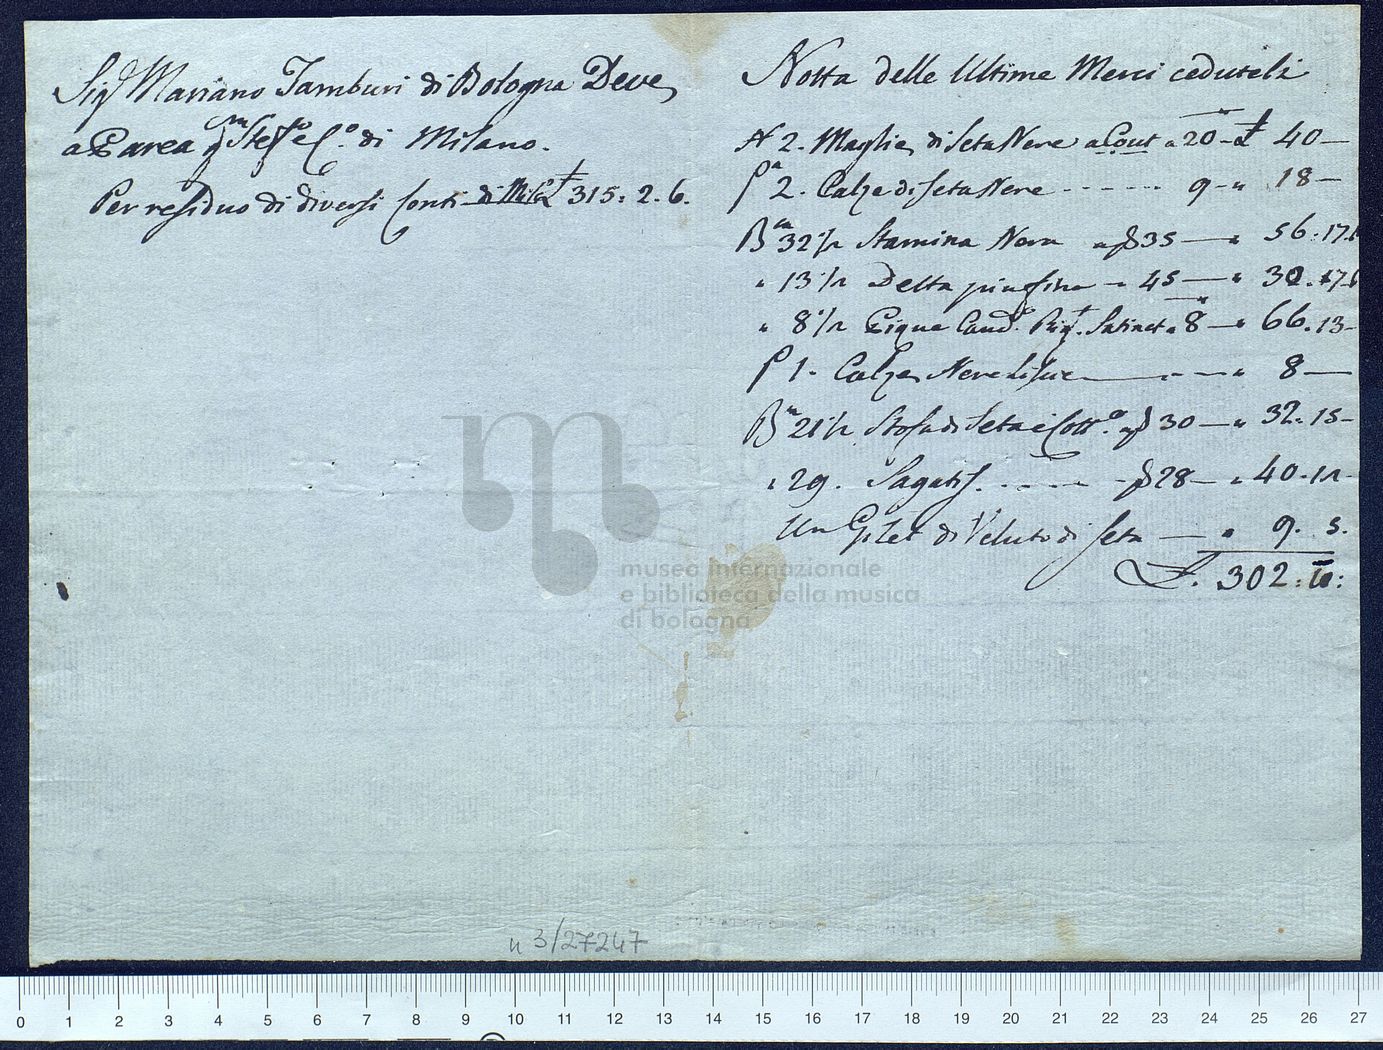 Sig.r Mariano Tamburi di Bologna Deve
a Parea Stef.o e C.o di Milano.
Per residuo di diversi Conti di Mil.o £ 315. 2. 6.
Notta delle Ultime Merci ceduteli
N 2. Maglie di Seta Nere a 20 - £ 40 —
P.a 2. Calze di Seta Nere - - - - - - 9 - " 18 —
B.a 32 1/2 Stamina Nera a 35 — " 56. 17.6
" 13 1/2 Detta più fina — " 45 — " 30. 17.6
" 8 1/2 Satinet " 8 — " 66. 13 -
P 1. Calze Nere — " 8 —
B.a 21 1/2 Stofa di Seta e Cott.o a 30 — " 32. 15 -
" 29. Sagatis. - - - - 28 — " 40. 12 -
Un Gilet di Veluto di Seta — " 9. 5.
£. 302: 10:
museo internazionale
e biblioteca della musica
di bologna
n 3/27247
0 1 2 3 4 5 6 7 8 9 10 11 12 13 14 15 16 17 18 19 20 21 22 23 24 25 26 27